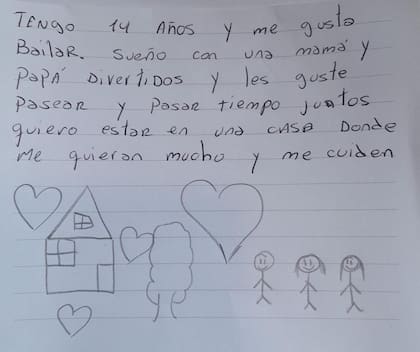 TENGO 14 AÑOS Y me gusta
BaiLaR. Sueño con una mamá y
PaPÁ DiveRtiDos y les guste
Pasear y Pasar tiempo juntos
quiero estar en una casa Donde
Me quieran mucho y me cuiden